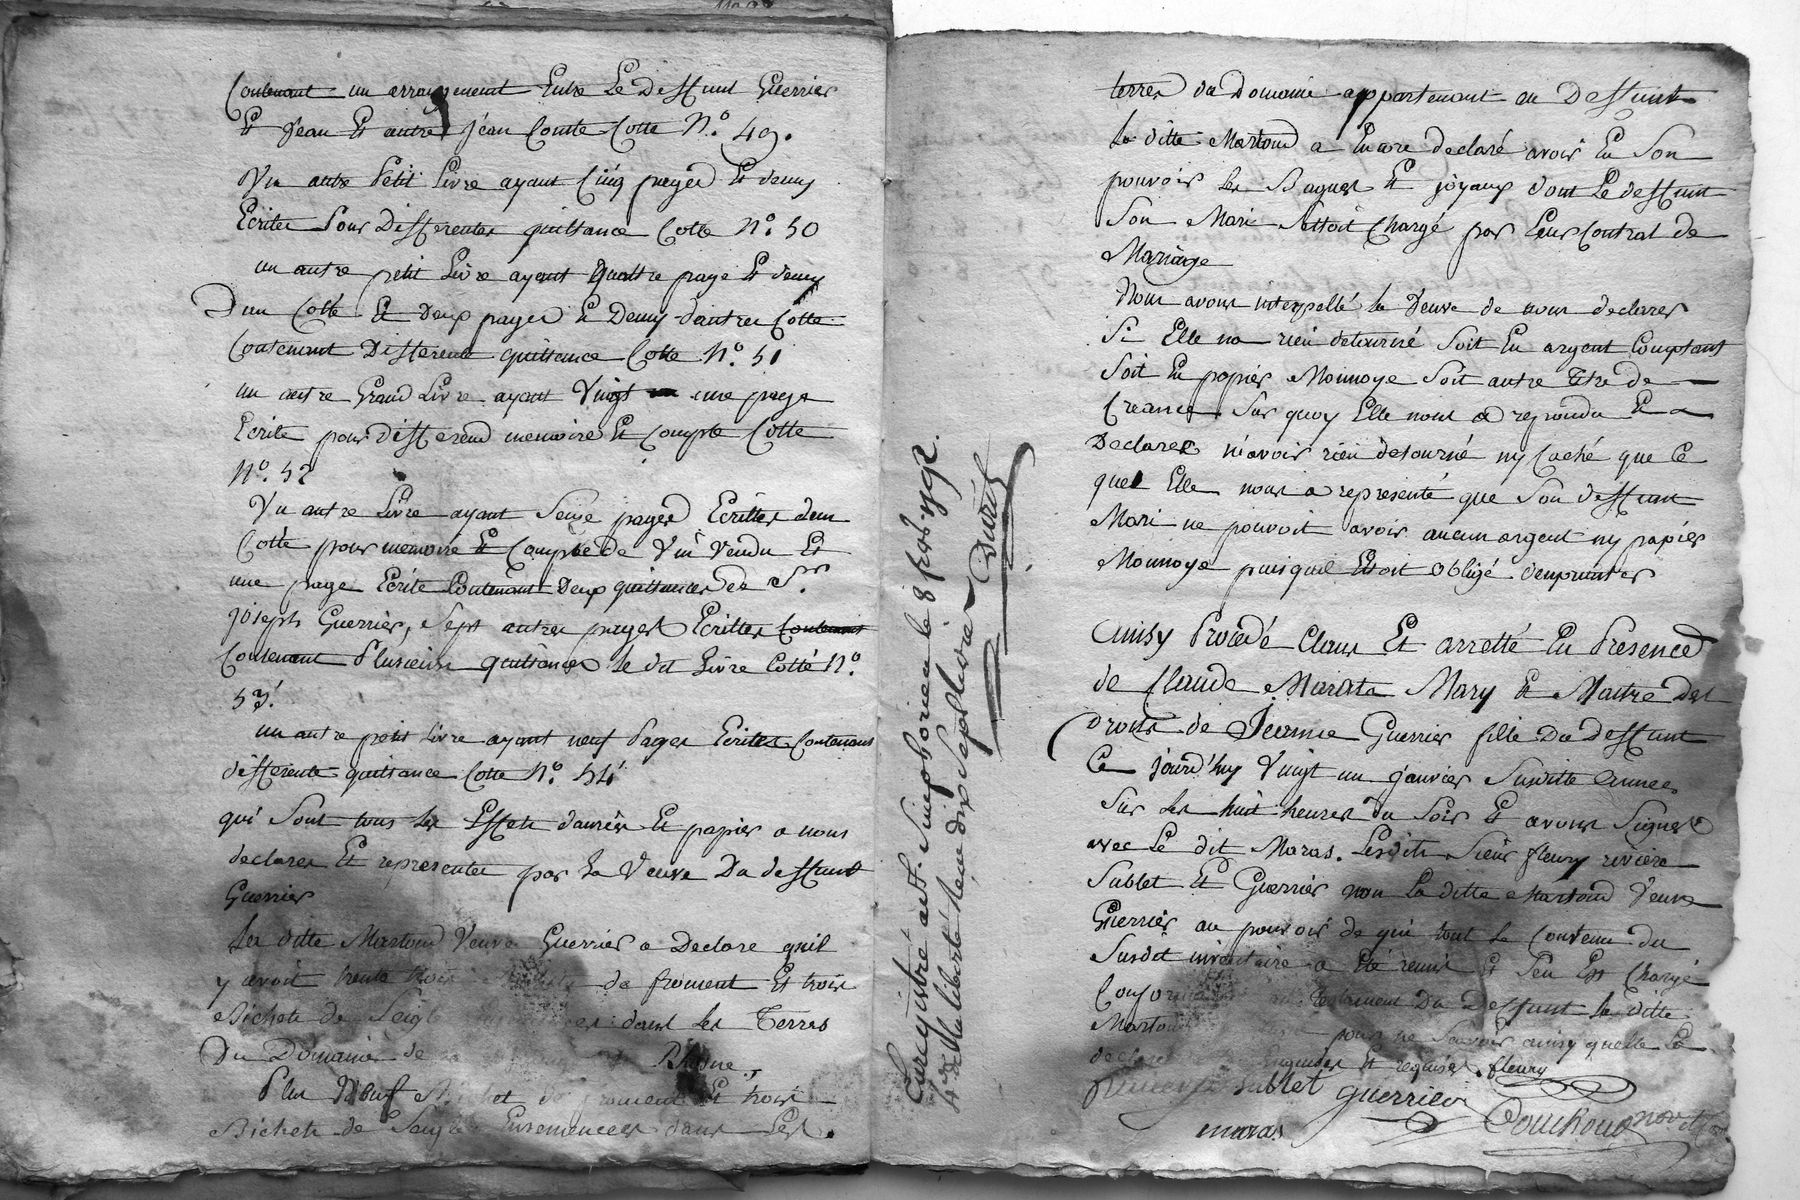 Contenant un arrangement Entre Le Deffunt Guerrier
Et Jean Et autre Jean Comte Cotte N.° 49.
Un autre Petit Livre ayant Cinq pages Et demy
Ecrites Pour Differentes quittance Cotte N.° 50
un autre petit Livre ayant quattre page Et demy
D'un Cotté Et Deux pages Et Demy d'autres Cotte
Contenant Differente quittance Cotte N.° 51
un autre Grand Livre ayant Vingt une page
Ecrite pour differend memoire Et Compte Cotte
N.° 52
Un autre Livre ayant Seize pages Ecrittes d'un
Cotté pour memoire Et Compte de Vin Vendu Et
une page Ecrite Contenant Deux quittances der Sr.
joseph Guerrier, Sept autres pages Ecrittes Contenant
Contenant Plusieurs quittances le dit Livre Cotté N.°
53.
un autre petit livre ayant neuf Pages Ecrites Contenant
differente quittance Cotte N.° 54
qui Sont tous les Effets danrées Et papier a nous
declarer Et representer par La Veuve Du deffunt
Guerrier
La ditte Martoud Veuve Guerrier a Declare quil
y avoit trente trois de froment Et trois
Bichets de Seigle dans les Terres
Du Domaine de Rhone.
Plus Neuf Bichet de froment Et trois
Bichets de Seigle Ensemencées dans Les
Enregistré a St. Simphorien le 8 fevr 1792.
4e de la liberté Reçu dix Sept livre
Duret
terres du Domaine appartenant au Deffunt
La ditte Martoud a Encore declaré avoir En Son
pouvoir les Bagues Et joyaux dont Le deffunt
Son Mari Settoit Chargé par Leur Contrat de
Mariage
Nous avons interpellé la Veuve de nous declarer
Si Elle na rien detourné Soit En argent Comptant
Soit En papier Monnoye Soit autre titre de
Creance Sur quoy Elle nous a repondu Et a
Declarer n'avoir rien detourné ny Caché que Ce
quel Elle nous a representé que Son deffunt
Mari ne pouvoit avoir aucun argent ny papier
Monnoye puisquil Ettoit obligé d'emprunter
Ainsy Procedé Claus Et arretté En Presence
de Claude Marata Mary Et Maitre Des
Droits de Jeanne Guerrier fille Du deffunt
Ce jourd'huy Vingt un janvier Susditte Année
Sur les huit heures Du Soir Et avons Signer
avec Le dit Maras. Lesdits Sieur fleury riviere
Sublet Et Guerrier non La ditte Martoud Veuve
Guerrier au pouvoir de qui tout le Contenu du
Susdit inventaire a Eté remis Et Sen Est Chargé
testament Du Deffunt la ditte
Martoud pour ne Scavoir ainsy quelle La
declaré Enquise Et requise. fleury
Sublet guerrier
maras Couchoud not